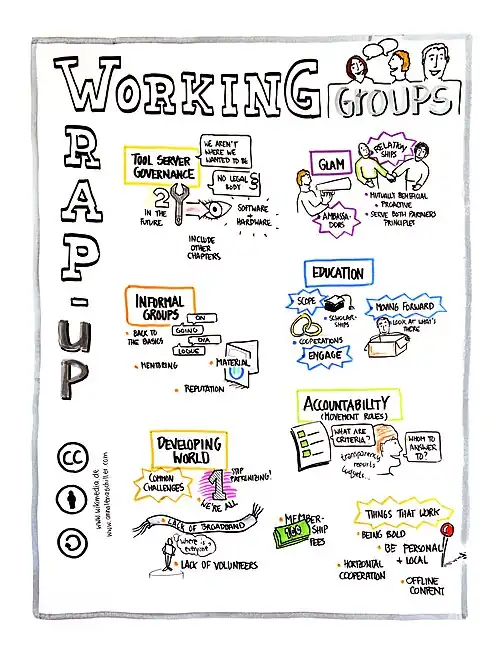 WORKING
GROUPS
WRAP-UP
TOOL SERVER
GOVERNANCE
WE AREN'T
WHERE WE
WANTED TO BE
NO LEGAL
BODY §
2
IN THE
FUTURE
SOFTWARE
+
HARDWARE
INCLUDE
OTHER
CHAPTERS
GLAM
RELATION
SHIPS
AMBASSA-
DORS
• MUTUALLY BENEFICIAL
• PROACTIVE
• SERVE BOTH PARTNERS
PRINCIPLES
INFORMAL
GROUPS
• BACK TO
THE BASICS
ON
GOING
DIA
LOGUE
• MENTORING
• MATERIAL
• REPUTATION
EDUCATION
SCOPE
• SCHOLAR-
SHIPS
• COOPERATIONS
ENGAGE
MOVING FORWARD
LOOK AT WHAT'S
THERE
ACCOUNTABILITY
(MOVEMENT ROLES)
WHAT ARE
CRITERIA?
transparency
reports
budgets...
WHOM TO
ANSWER
TO?
DEVELOPING
WORLD
COMMON
CHALLENGES
1
STOP
PATRONIZING!
• WE'RE ALL
• LACK OF BROADBAND
where is
everyone?
• LACK OF VOLUNTEERS
• MEMBER-
SHIP
FEES
100
THINGS THAT WORK
• BEING BOLD
• BE PERSONAL
+ LOCAL
• HORIZONTAL
COOPERATION
• OFFLINE
CONTENT
CC
www.wikimedia.de
www.annalenaschiller.com